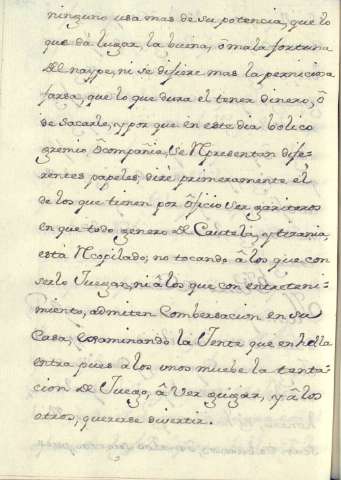 ninguno usa mas de su potencia, que lo
que dá lugar, la buena, ô mala fortuna
del naype, ni se difiere mas la perniciosa
farsa, que lo que dura el tener dinero, ô
de sacarle, y por que en este dia bolico
gremio, ô compañia, se Representan dife-
rentes papeles, diré primeramente él
de los que tienen por ôficio ser gariteros
en que todo genero de Cautela, y tirania,
está Recopilado; no tocando â los que con
serlo Juegan, ni â los que con entreteni-
miento, admiten Combersacion en su
Casa, examinando la Jente que en ella
entra pues a los unos muebe la tenta-
cion de Juego, â Ver jugar, y â los
otros, quererse divertir.